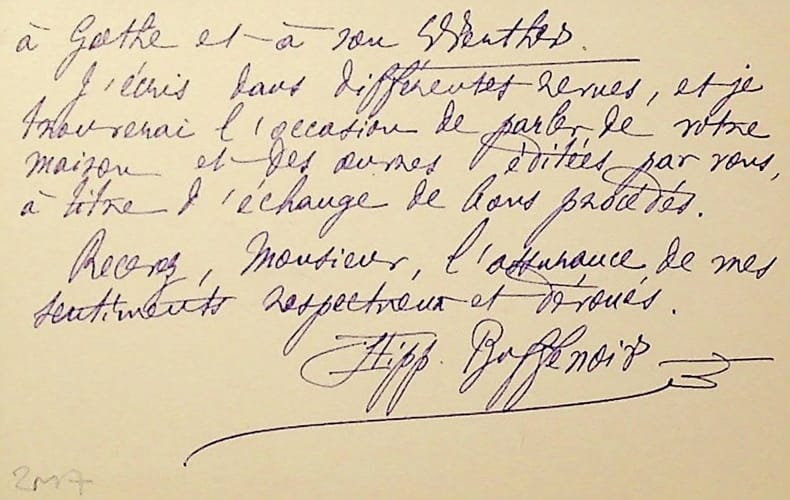 à Gœthe et à son Werther.
J'écris dans différentes revues, et je
trouverai l'occasion de parler de votre
maison et des œuvres éditées par vous,
à titre d'échange de bons procédés.
Recevez, Monsieur, l'assurance de mes
sentiments respectueux et dévoués.
Hipp. Buffenoir